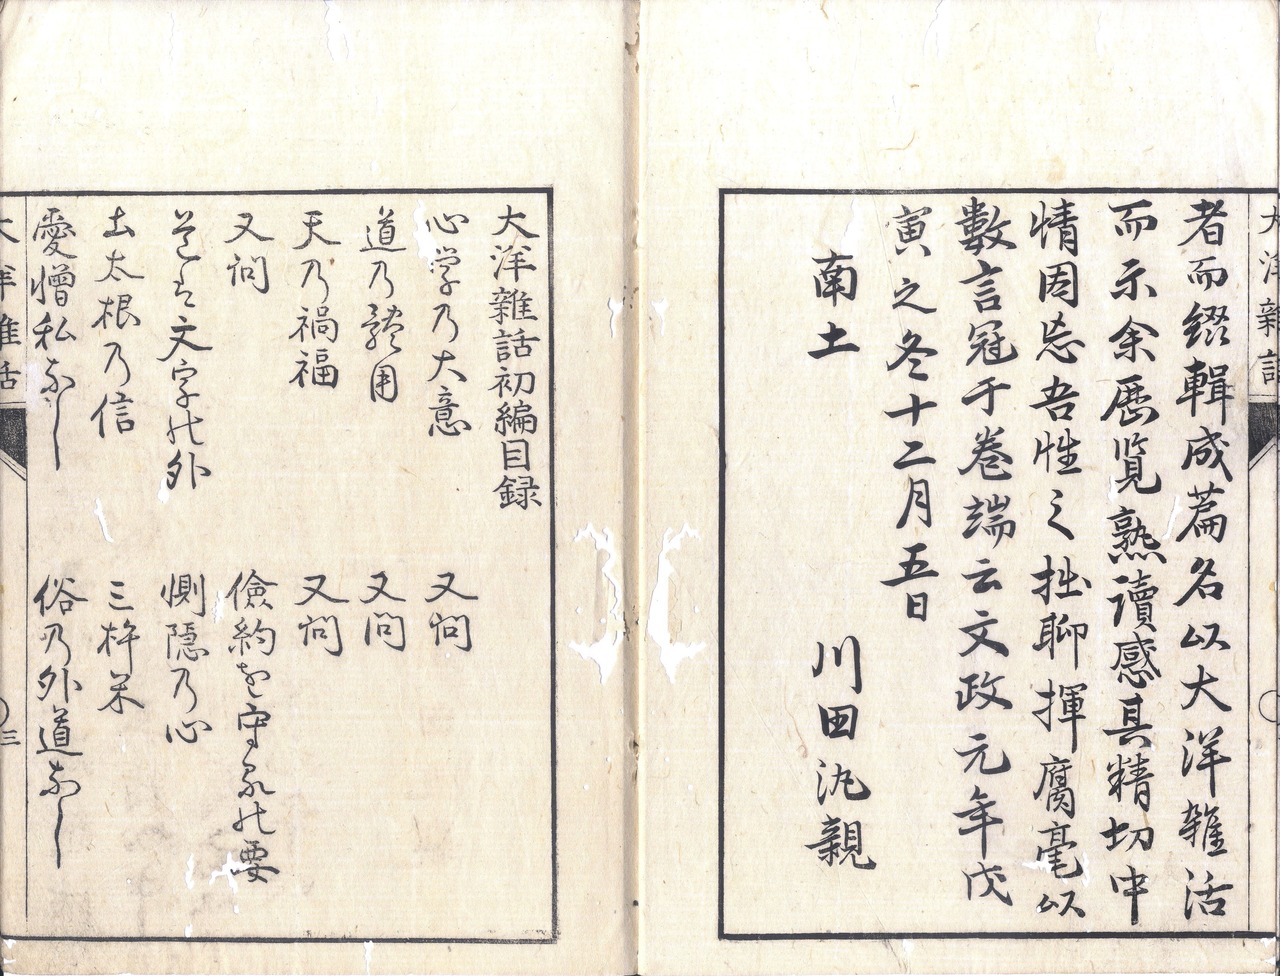 大洋雜話
者而綴輯成篇名以大洋雜活
而示余歷覧熟讀感其精切中
情因忘吾性之拙聊揮腐毫以
數言冠于巻端云文政元年戊
寅之冬十二月五日
南土　川田汎親
大洋雜話初編目録
心学乃大意　又問
道乃體用　又問
天乃禍福　又問
又問　儉約を守るの要
道は文字の外　惻隠乃心
土太根乃信　三杵米
愛憎私なし　俗乃外道なし
大洋雜話
三